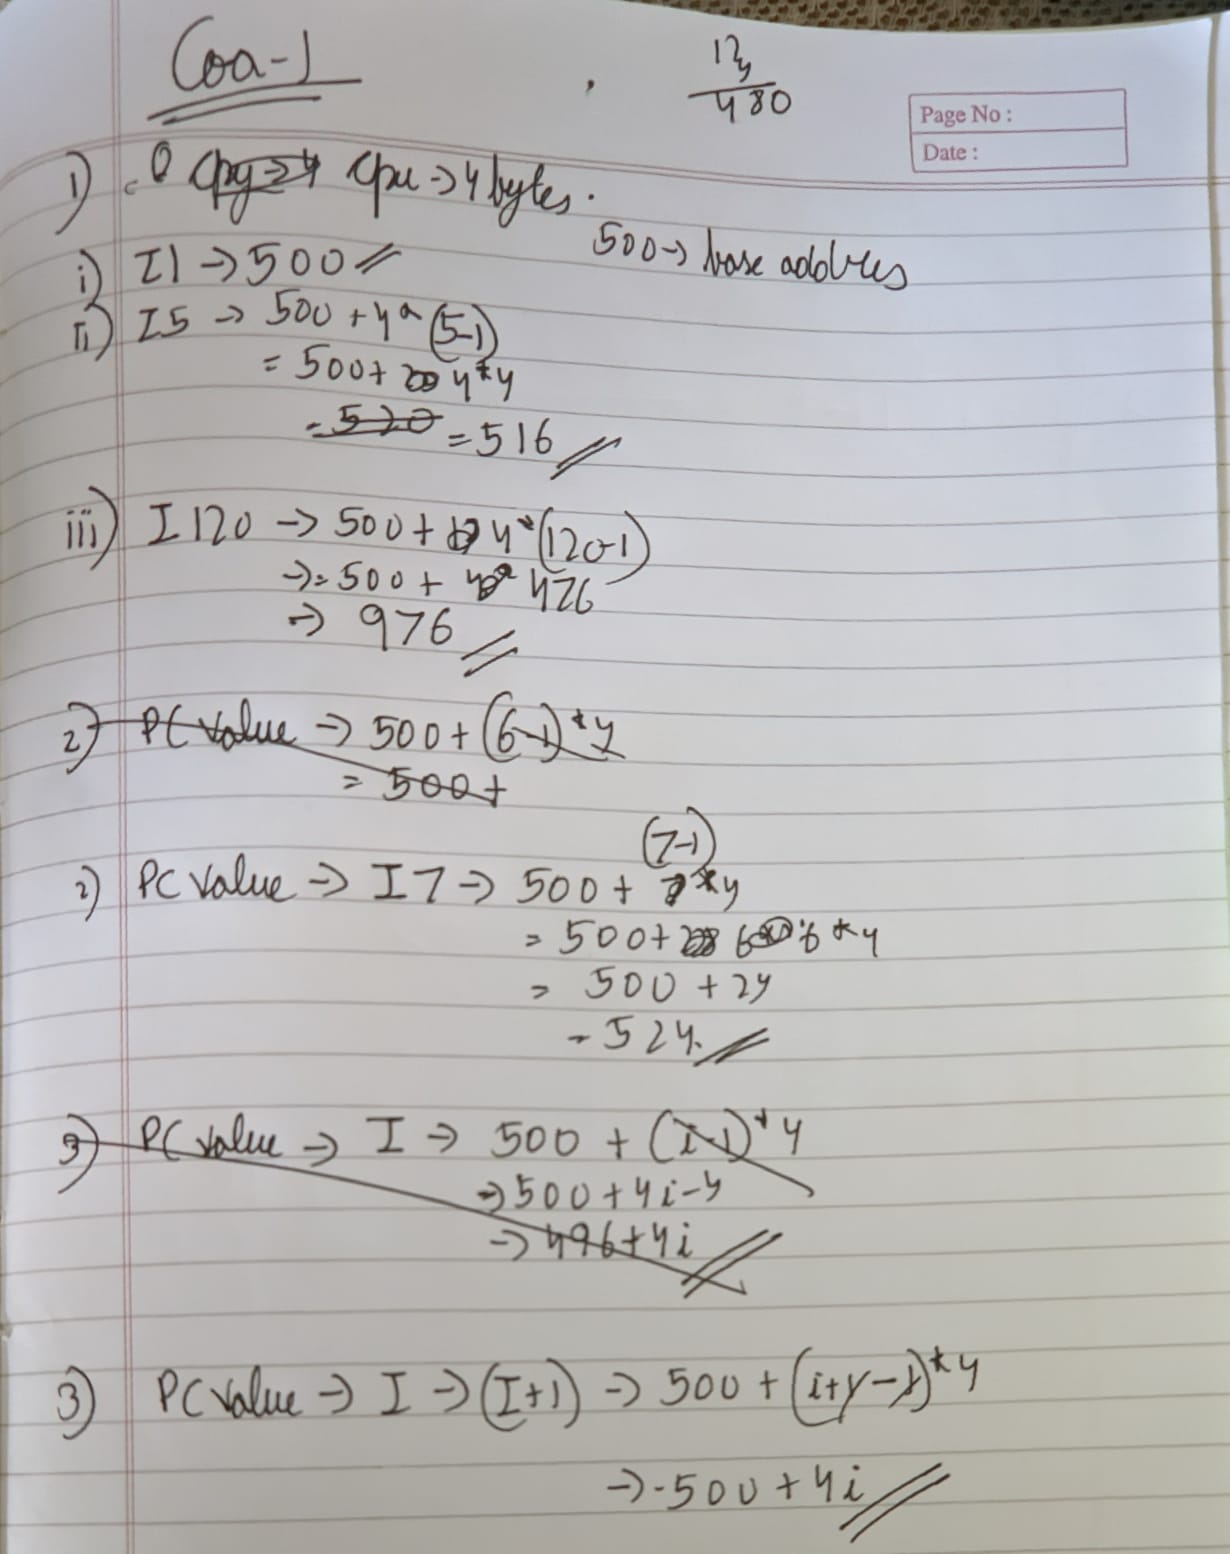 Coa-1
12
4
480
Page No :
Date :
1) cpu → 4 bytes.
500 → base address
i) I1 → 500
ii) I5 → 500 + 4 * (5-1)
= 500 + 4*4
= 520 = 516
iii) I120 → 500 + 4*(120-1)
→ = 500 + 476
→ 976
2) PC Value → 500 + (6-1) * 4
= 500 +
(7-1)
2) PC Value → I7 → 500 + 7*4
= 500 + 6*4
= 500 + 24
= 524.
3) PC Value → I → 500 + (i-1)* 4
→ 500 + 4i-4
→ 496 + 4i
3) PC Value → I → (I+1) → 500 + (i+1-1)*4
→ 500 + 4i